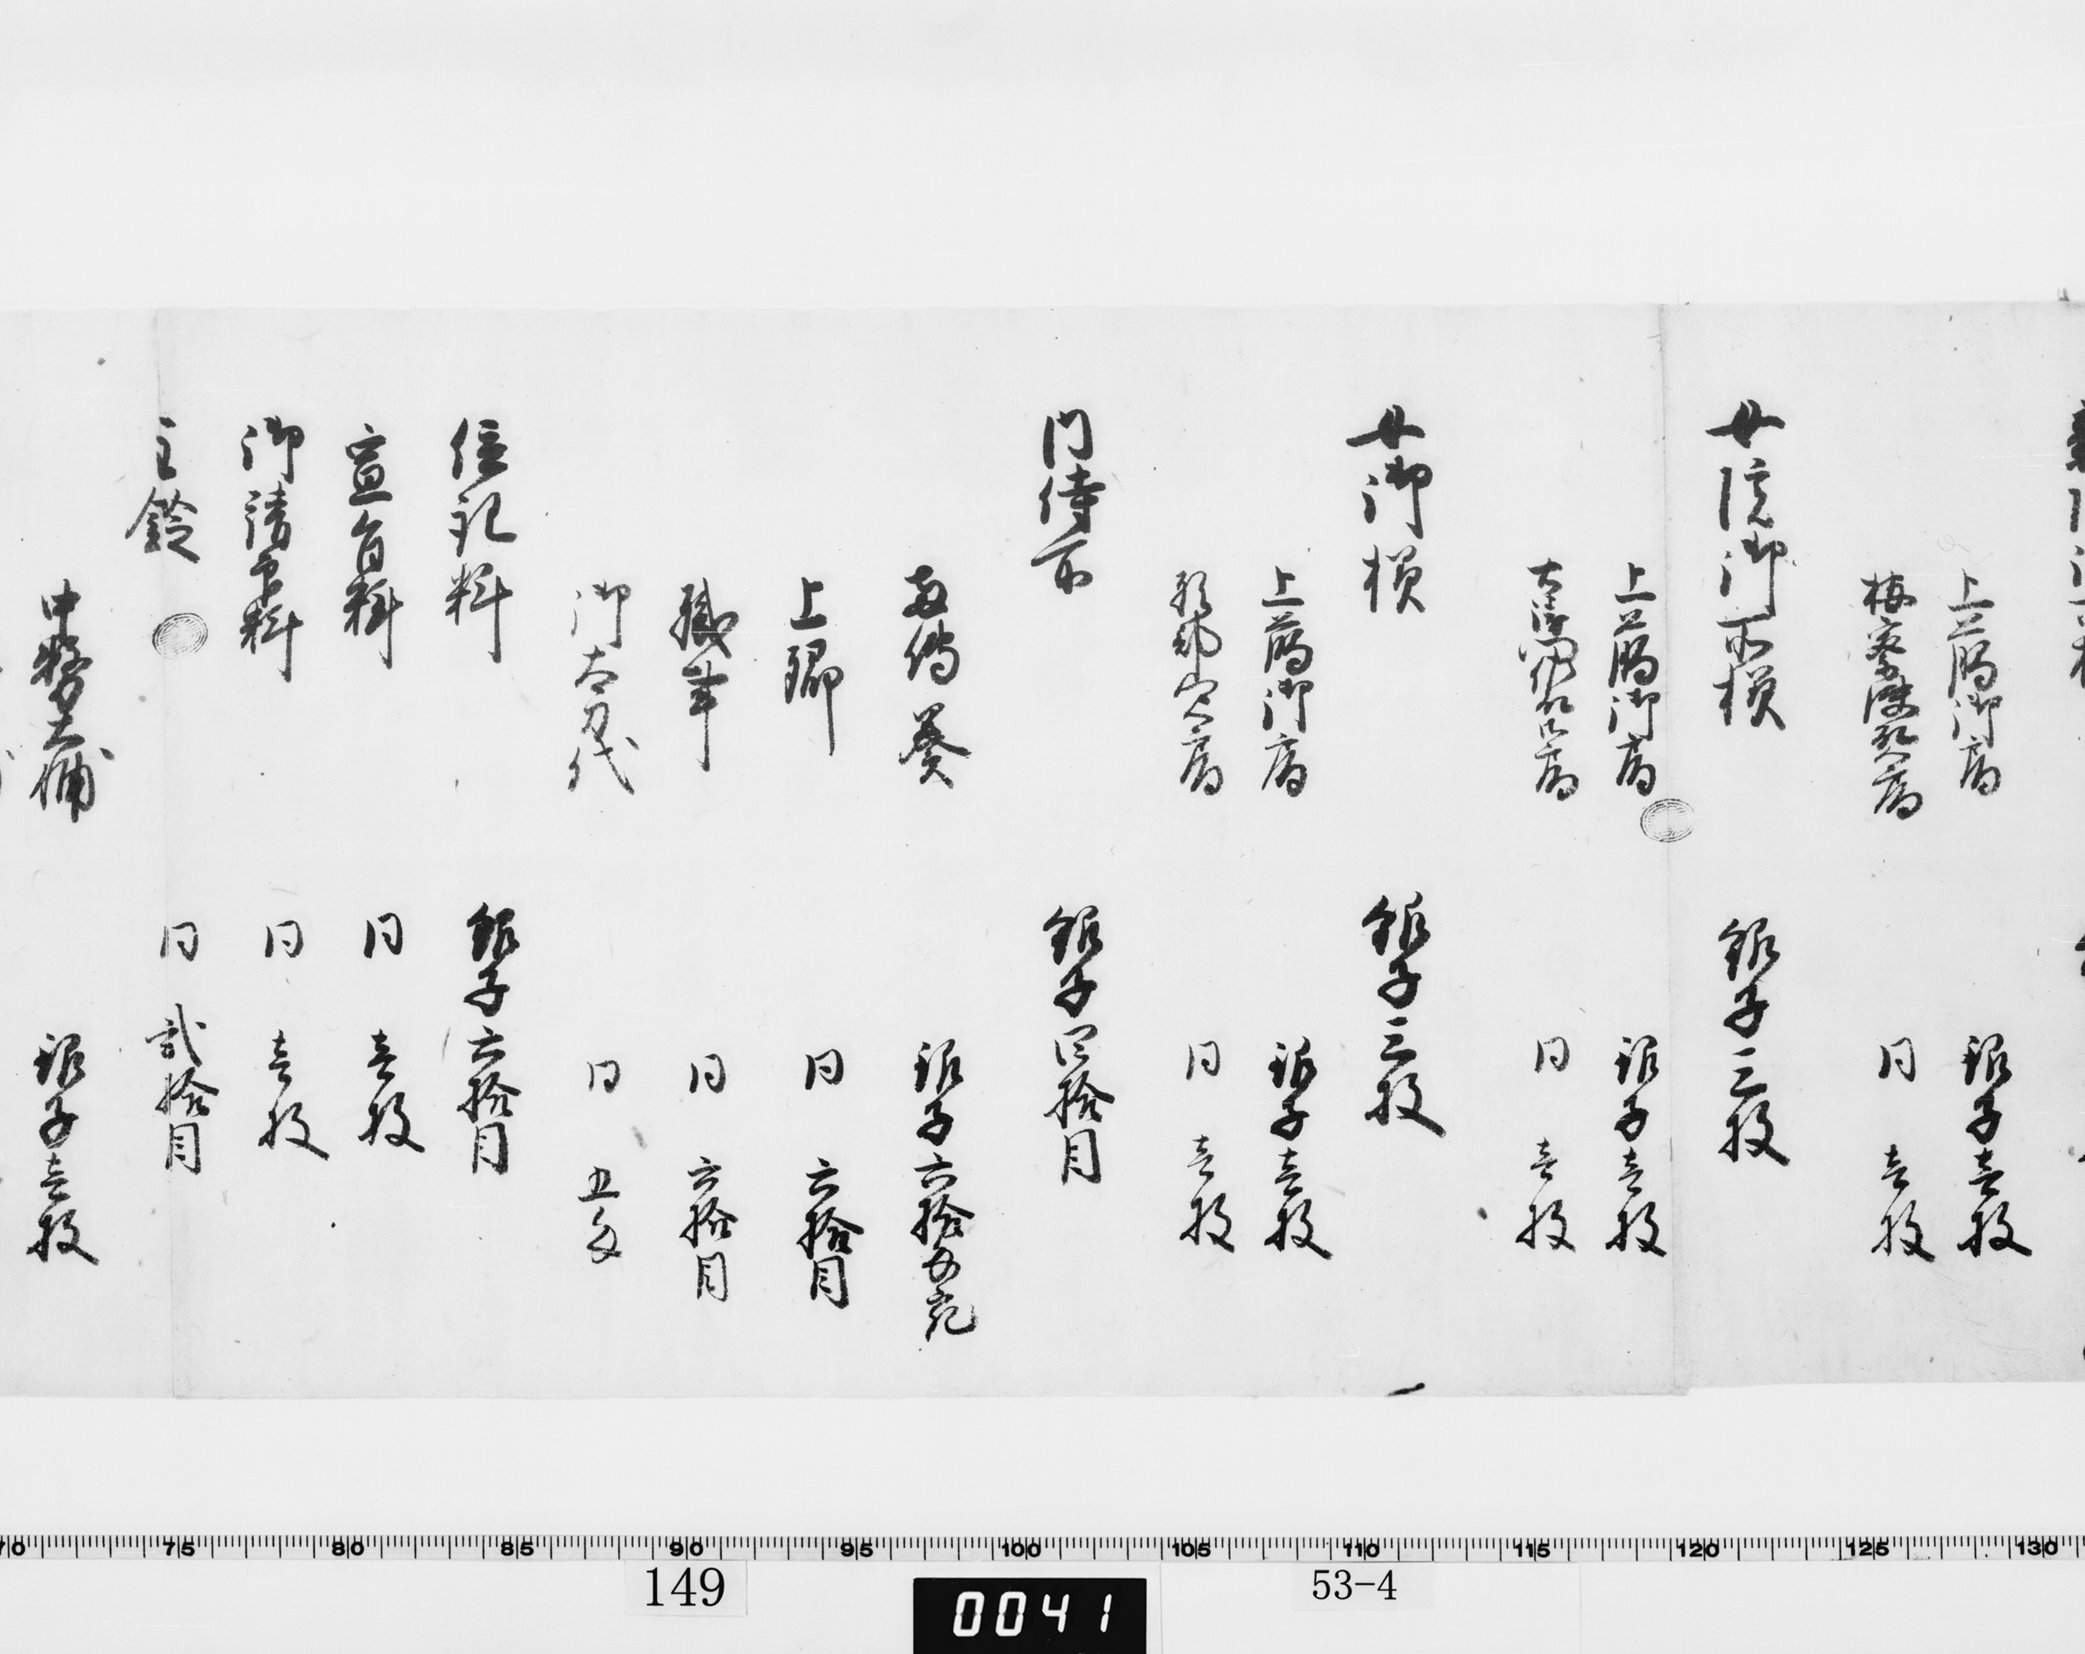 上﨟御局
銀子壱枚
同 壱枚
女院御所様
銀子三枚
上﨟御局
銀子壱枚
同 壱枚
女御様
銀子三枚
上﨟御局
銀子壱枚
同 壱枚
内侍所
銀子四拾目
両伝奏
銀子六拾五宛
上卿
同 六拾目
職事
同 六拾目
御太刀代
同 五匁
位記料
銀子六拾目
宣旨料
同 壱枚
御請印料
同 壱枚
主鈴
同 弐拾目
中務大輔
銀子壱枚
70 75 80 85 90 95 100 105 110 115 120 125 130
149
0041
53-4